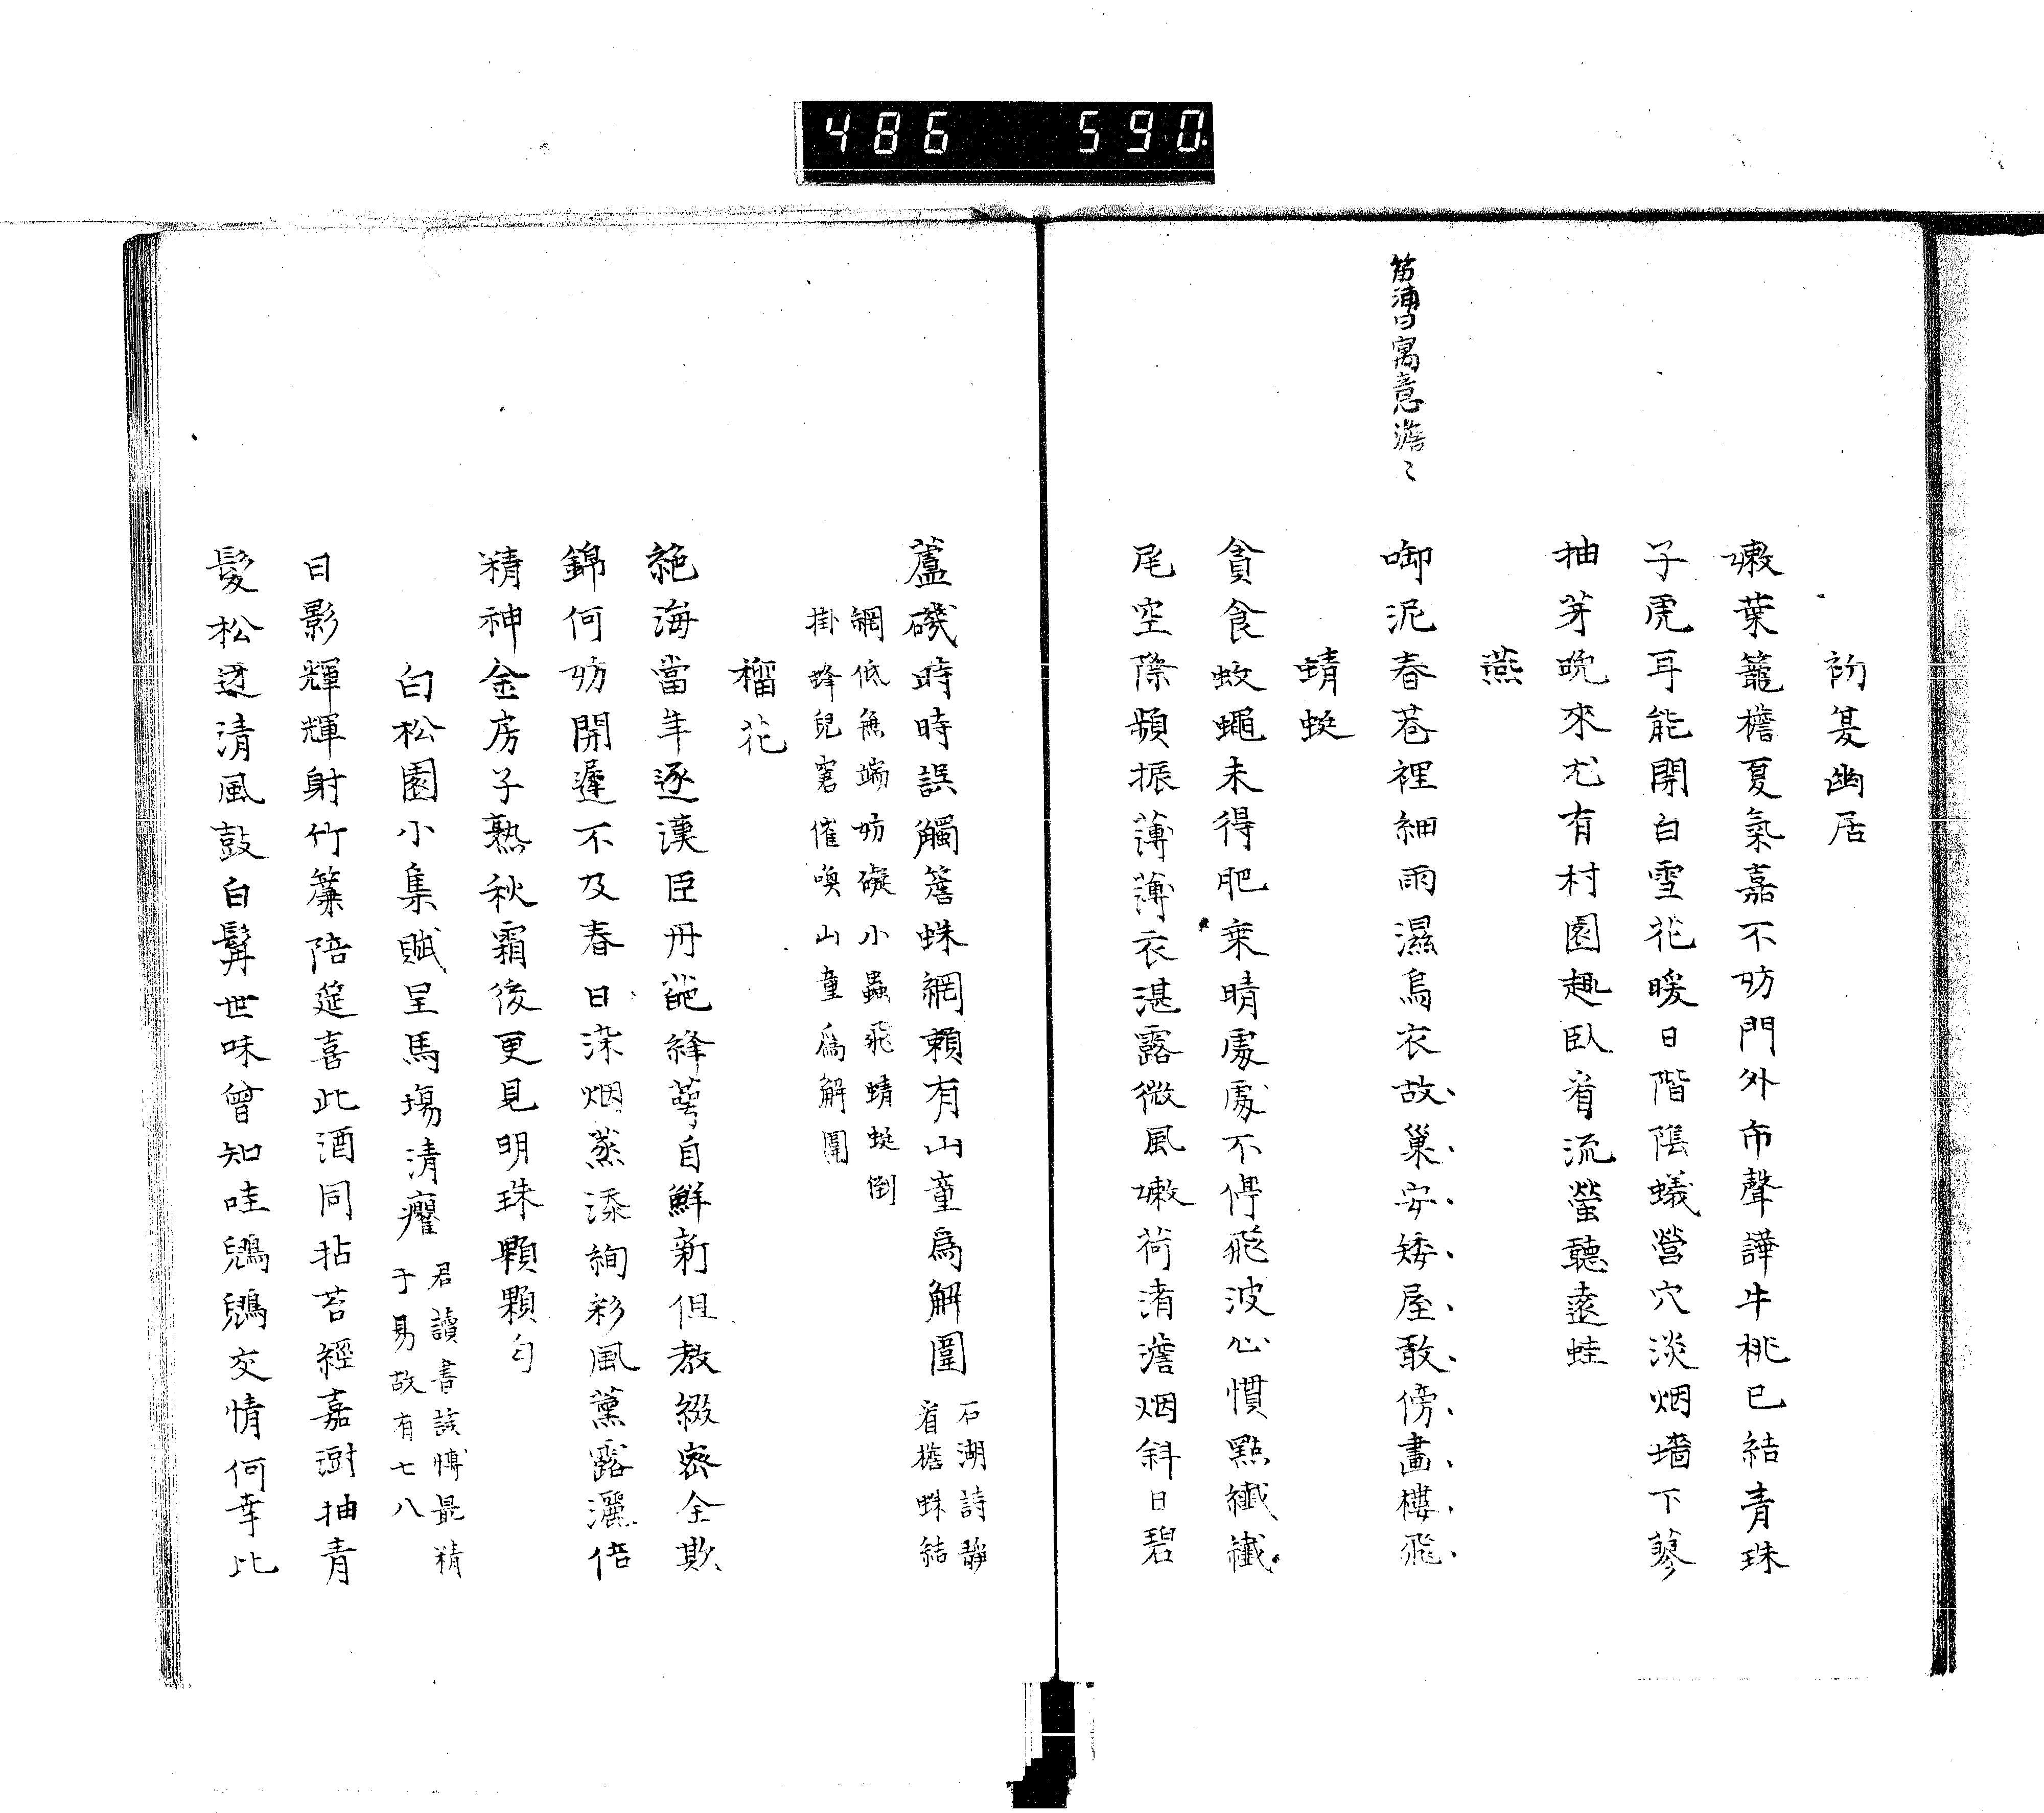 486 590
初夏幽居
嫩葉籠檐夏氣嘉不妨門外市聲譁牛桃已結青珠
子虎耳能開白雪花暖日階陰蟻營穴淡烟墻下蓼
抽芽晩來尤有村園趣臥看流螢聽遠蛙
燕
笛浦曰寓意澹〻
啣泥春巷裡細雨濕烏衣故巢安矮屋敢傍畫樓飛
蜻蜓
貪食蚊蠅未得肥乗晴處處不停飛波心慣點纖纖
尾空際頻振薄薄衣湛露微風嫩荷渚澹烟斜日碧
蘆磯時時誤觸簷蛛網頼有山童爲解圍 石湖詩靜
看檐蛛結
網低無端妨礙小蟲飛蜻蜓倒
掛蜂兒窘催喚山童爲解圍
榴花
絶海當年逐漢臣丹葩絳萼自鮮新但教綴密全欺
錦何妨開遲不及春日染烟蒸添絢彩風薰露灑倍
精神金房子熟秋霜後更見明珠顆顆匀
白松園小集賦呈馬塲清癯 君讀書該愽最精
于易故有七八
日影輝輝射竹簾陪筵喜此酒同拈苔經嘉澍抽青
髮松透清風鼓白髯世味曾知哇鶃鶃交情何幸比